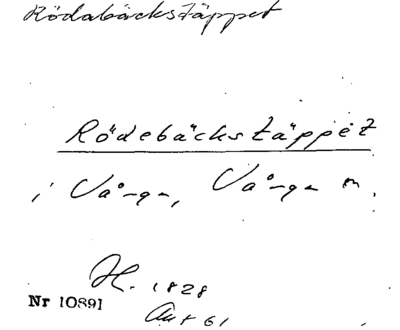 Rödabäckstäppet
Rödebäckstäppet
i Vånga, Vånga m.
H. 1828
Nr 10891
Akt 61